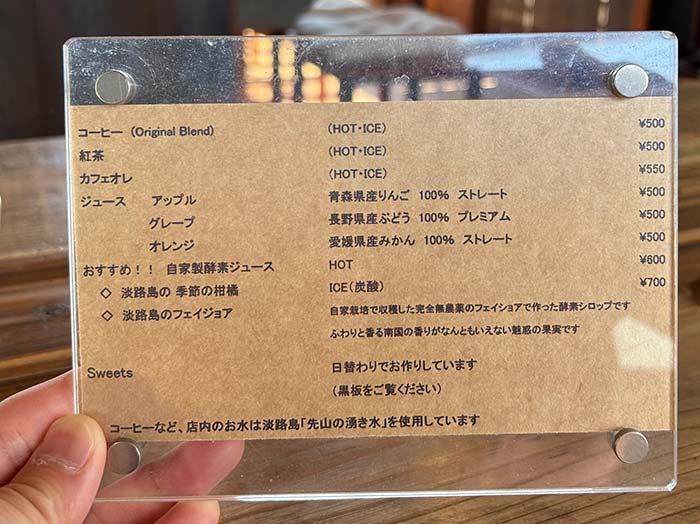 コーヒー (Original Blend) (HOT・ICE) ¥500
紅茶 (HOT・ICE) ¥500
カフェオレ (HOT・ICE) ¥550
ジュース アップル 青森県産りんご 100% ストレート ¥500
グレープ 長野県産ぶどう 100% プレミアム ¥500
オレンジ 愛媛県産みかん 100% ストレート ¥500
おすすめ！！ 自家製酵素ジュース HOT ¥600
◇ 淡路島の 季節の柑橘 ICE(炭酸) ¥700
◇ 淡路島のフェイジョア 自家栽培で収穫した完全無農薬のフェイショアで作った酵素シロップです
ふわりと香る南国の香りがなんともいえない魅惑の果実です
Sweets 日替わりでお作りしています
(黒板をご覧ください)
コーヒーなど、店内のお水は淡路島「先山の湧き水」を使用しています